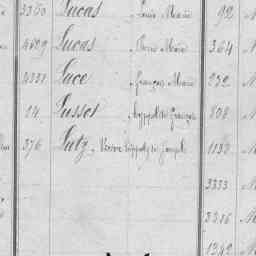 3360 Lucas Louis Marie 92 N
4529 Lucas Pierre Marie 364 N
4331 Luce François Marie 272 N
24 Lussot hyppolite François 808 N
376 Lutz, Victor hippolyte Joseph 1132 N
3333 N
3216 N
1342 N